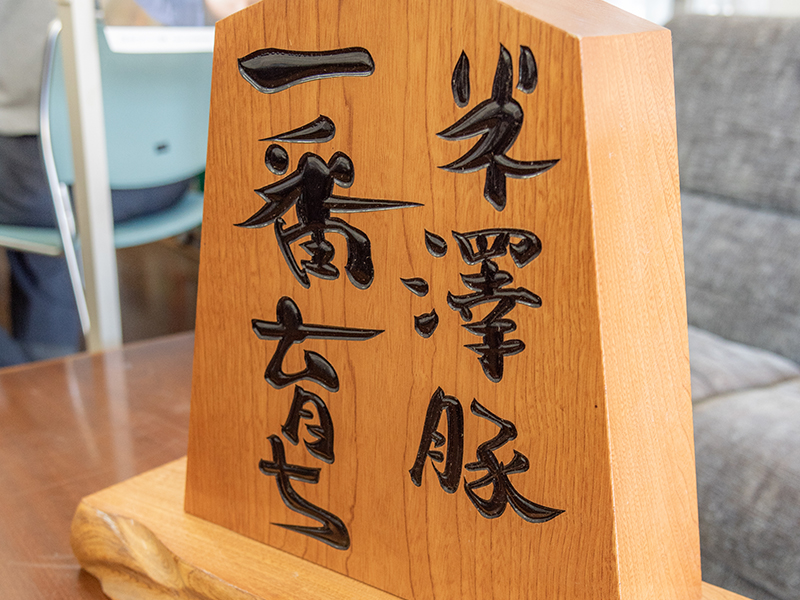 米澤豚
一番育ち